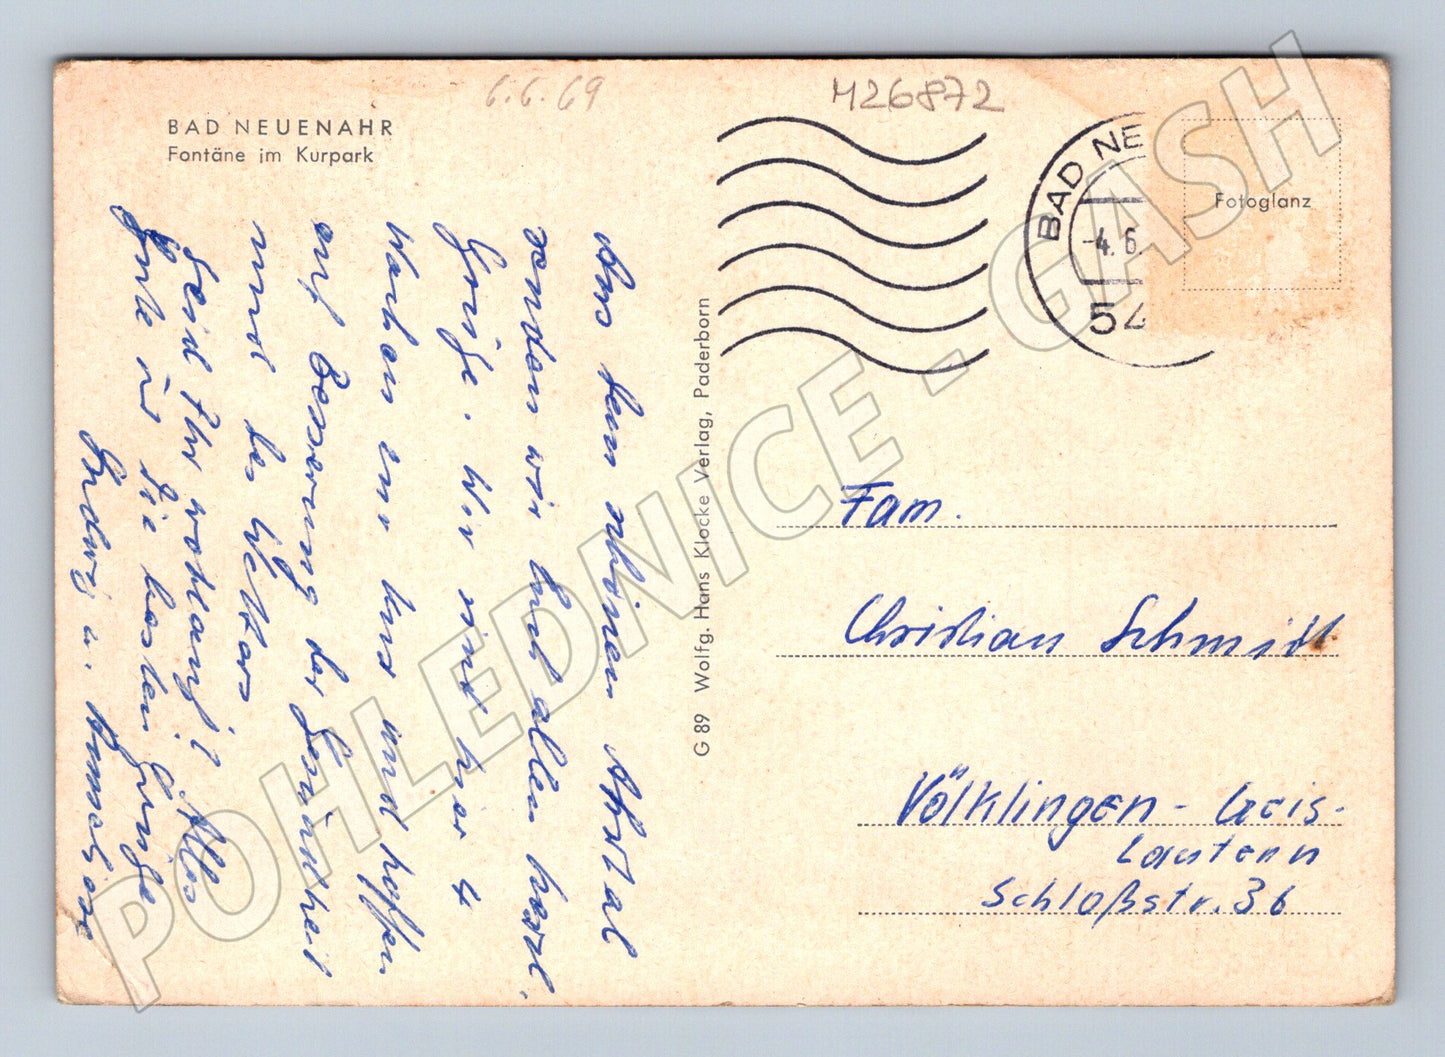 6.6.69
M26872
BAD NEUENAHR
Fontäne im Kurpark
BAD NE
-4.6.
54
Fotoglanz
Aus dem schönen Ahrtal
senden wir Euch allen herzl.
Grüße. Wir sind hier 4
Wochen zur Kur und hoffen
auf Besserung der Gesundheit
und des Wetters
Seid Ihr wohlauf? Alles
Gute u. die besten Grüße
Ludwig u. Anneliese
G 89 Wolfg. Hans Klocke Verlag, Paderborn
Fam.
Christian Schmidt
Völklingen - Geis-
Lautern
Schloßstr. 36
POHLEDNICE - GASH